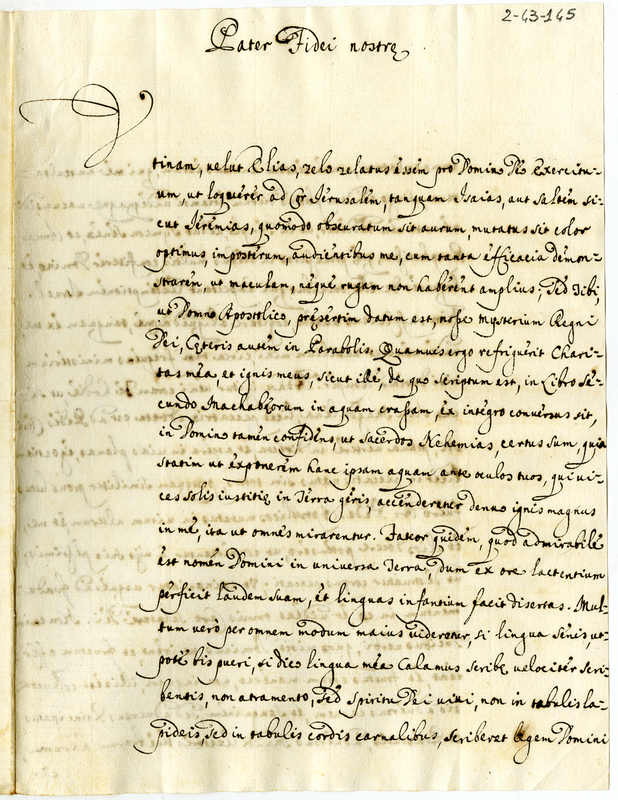 2-43-165
Pater Fidei nostrę
V
tinam, velut Elias, zelo zelatus essem pro Domino Deo Exercitu-
um, ut loquerer ad Cor Jerusalem, tanquam Isaias, aut saltem si-
cut Jeremias, quomodo obscuratum sit aurum, mutatus sit color
optimus, imposterum, audientibus me, cum tanta efficacia demon-
strarem, ut maculam, neque rugam non haberent amplius; Sed Tibi,
ut Domno Apostolico, pręsertim datum est, nosse mysterium Regni
Dei, Cęteris autem in Parabolis. Quamvis ergo refriguerit Chari-
tas mea, et ignis meus, sicut ille, de quo scriptum est, in Libro Se-
cundo Machabęorum in aquam crassam, ex integro conversus sit,
in Domino tamen confidens, ut sacerdos Nehemias, certus sum, quia
statim ut exponerem hanc ipsam aquam ante oculos tuos, qui vi-
ces solis iustitię in Terra geris, accenderetur denuo ignis magnus
in me, ita ut omnes mirarentur. Fateor quidem, quod admirabile
est nomen Domini in universa Terra, dum ex ore lactentium
perficit laudem suam, et linguas infantium facit disertas. Mul-
tum vero per omnem modum maius videretur, si lingua senis, ut-
pote bis pueri, si dico lingua mea Calamus scribę velociter scri-
bentis, non atramento, sed Spiritu Dei vivi, non in tabulis la-
pideis, sed in tabulis cordis carnalibus, scriberet legem Domini